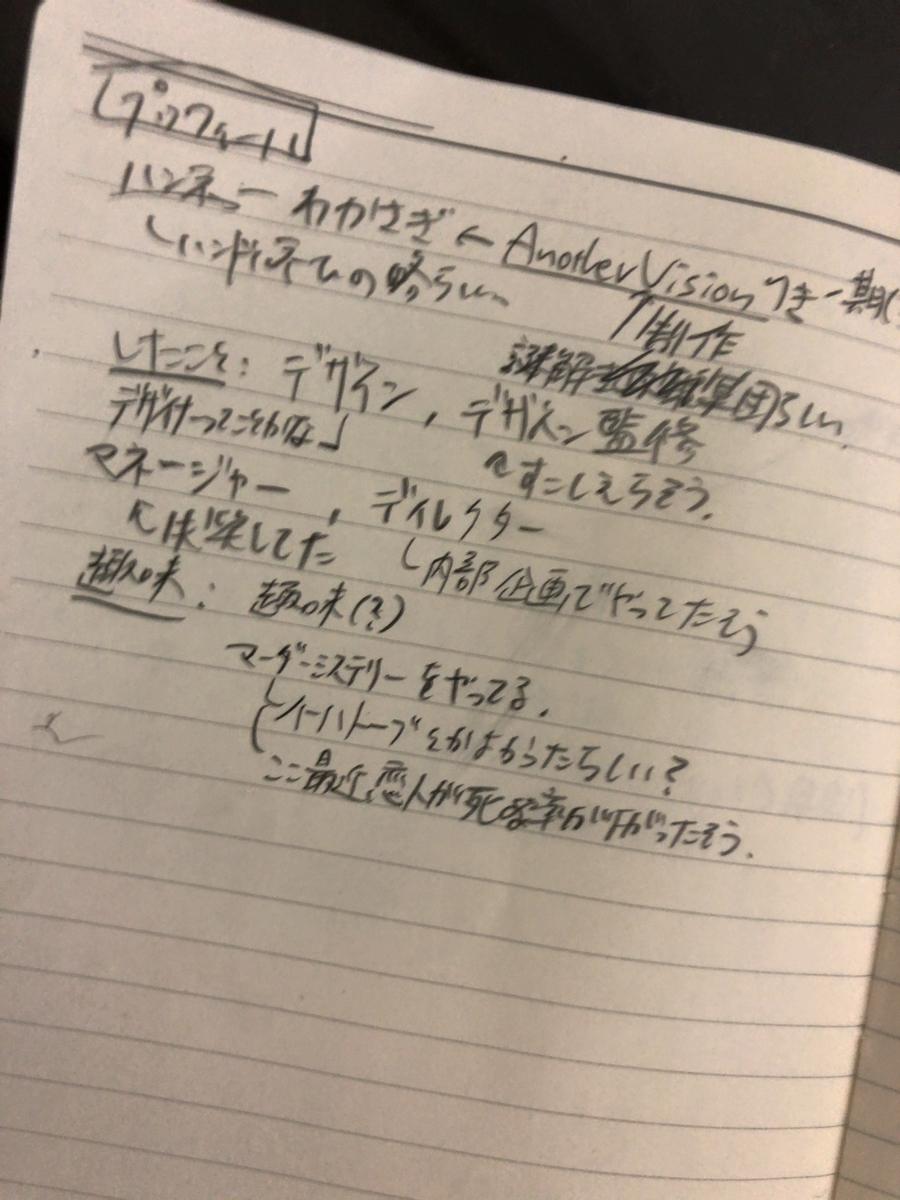 [プロフィール]
ハンネ ー わかさぎ ← AnotherVision 一期
しハンドルネームの略らしい
↑制作
謎解き 集団らしい
したこと: デザイン, デザイン監修
デザイナーってことかな」 ↖すこしえらそう。
マネージャー, ディレクター
↖ してた し内部企画でやってたそう
趣味: 趣味(?)
マーダーミステリーをやってる.
(イーハトーブとかよかったらしい?
ここ最近恋人が死ぬ率が下がったそう.